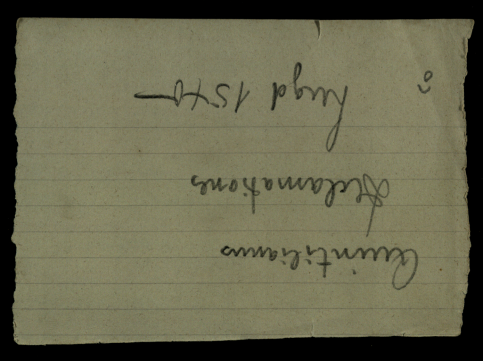 Quintilianus
Declamationes
Lugd 1540